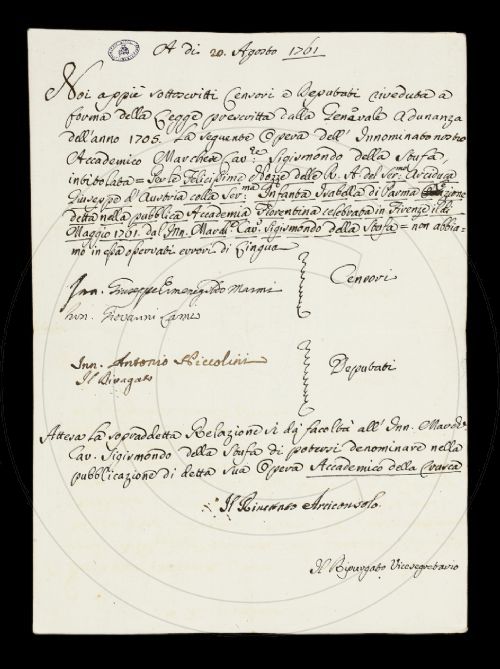 A di 20. Agosto 1761
Noi appiè sottoscritti Censori e Deputati riveduta a
forma della Legge prescritta dalla Generale Adunanza
dell'anno 1705. La seguente Opera dell'Innominato nostro
Accademico Marchese Cav:re Sigismondo della Stufa,
intitolata = Per le Felicissime Nozze delle R. A. del Ser:mo Arciduca
Giuseppe d'Austria colla Ser:ma Infanta Isabella di Parma Orazione
detta nella pubblica Accademia Fiorentina celebrata in Firenze il dì
Maggio 1761. dal Inn. March: Cav: Sigismondo della Stufa = non abbia=
mo in essa osservati errori di Lingua
Inn. Giuseppe Ermenegildo Marmi
Inn. Giovanni Lami
Censori
Inn. Antonio Niccolini
Il Ripurgato
Deputati
Attesa la sopraddetta Relazione si dà facoltà all'Inn. March:
Cav. Sigismondo della Stufa di potersi denominare nella
pubblicazione di detta sua Opera Accademico della Crusca
Il Arciconsolo.
Il Ripurgato Vicesegretario